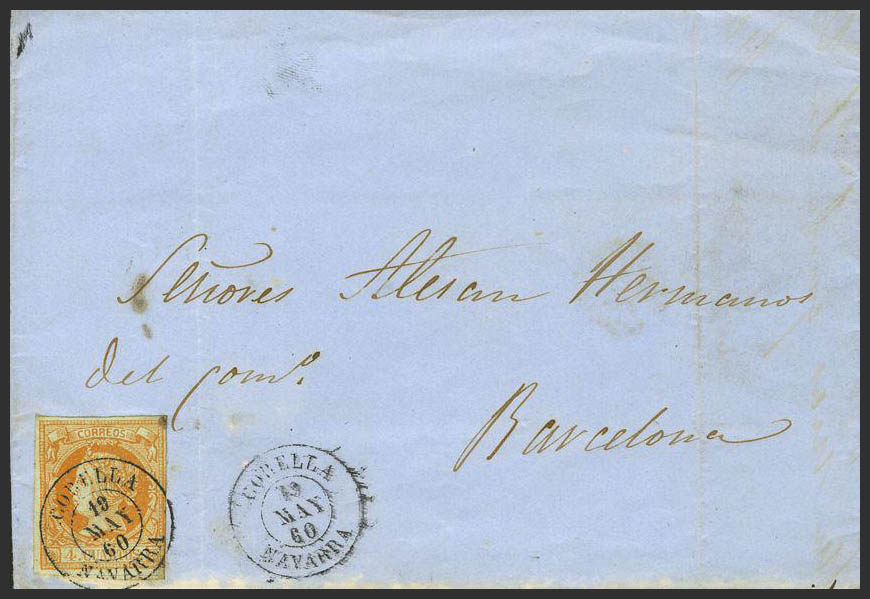 Señores Alesan Hermanos
del comº.
Barcelona
CORREOS
CORELLA
19
MAY
60
NAVARRA
CORELLA
19
MAY
60
NAVARRA